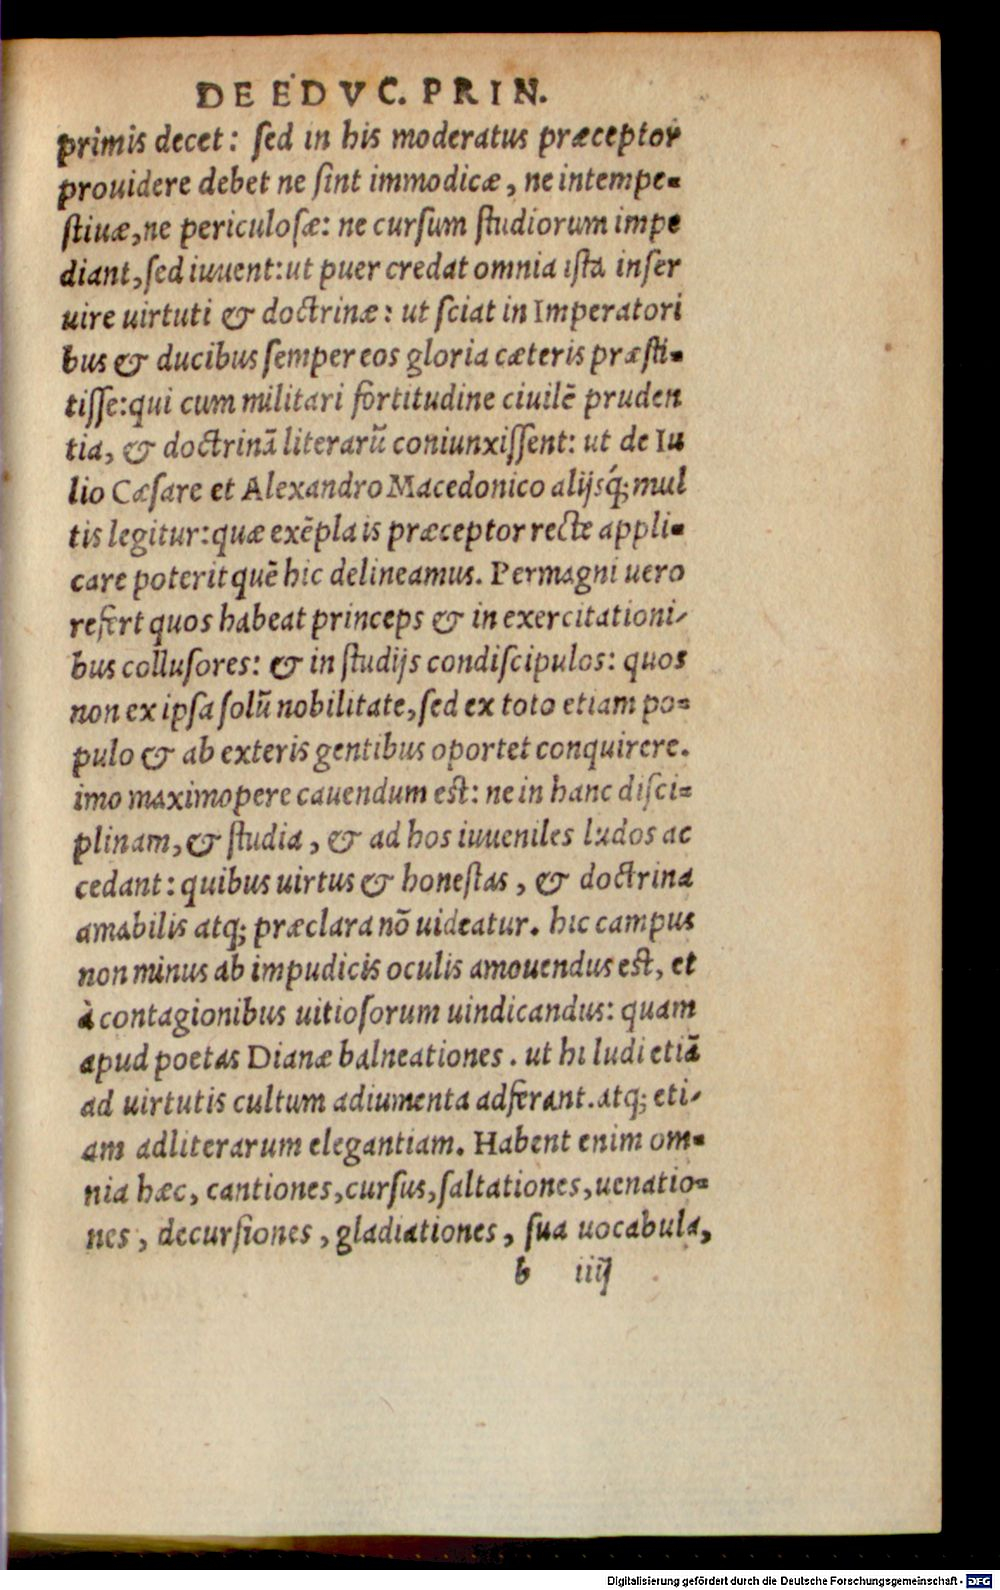 DE EDVC. PRIN.
primis decet: sed in his moderatus præceptor
prouidere debet ne sint immodicæ, ne intempe-
stiuæ, ne periculosæ: ne cursum studiorum impe
diant, sed iuuent: ut puer credat omnia ista inser
uire uirtuti & doctrinæ: ut sciat in Imperatori
bus & ducibus semper eos gloria cæteris præsti-
tisse: qui cum militari fortitudine ciuilē pruden
tia, & doctrinā literarū coniunxissent: ut de Iu
lio Cæsare et Alexandro Macedonico alijsq́; mul
tis legitur: quæ exēpla is præceptor recte appli-
care poterit quē hic delineamus. Permagni uero
refert quos habeat princeps & in exercitationi-
bus collusores: & in studijs condiscipulos: quos
non ex ipsa solū nobilitate, sed ex toto etiam po-
pulo & ab exteris gentibus oportet conquirere.
imo maximopere cauendum est: ne in hanc disci-
plinam, & studia, & ad hos iuueniles ludos ac
cedant: quibus uirtus & honestas, & doctrina
amabilis atq; præclara nō uideatur. hic campus
non minus ab impudicis oculis amouendus est, et
à contagionibus uitiosorum uindicandus: quam
apud poetas Dianæ balneationes. ut hi ludi etiā
ad uirtutis cultum adiumenta adferant. atq; eti-
am ad literarum elegantiam. Habent enim om-
nia hæc, cantiones, cursus, saltationes, uenatio-
nes, decursiones, gladiationes, sua uocabula,
b iiij
Digitalisierung gefördert durch die Deutsche Forschungsgemeinschaft - DFG